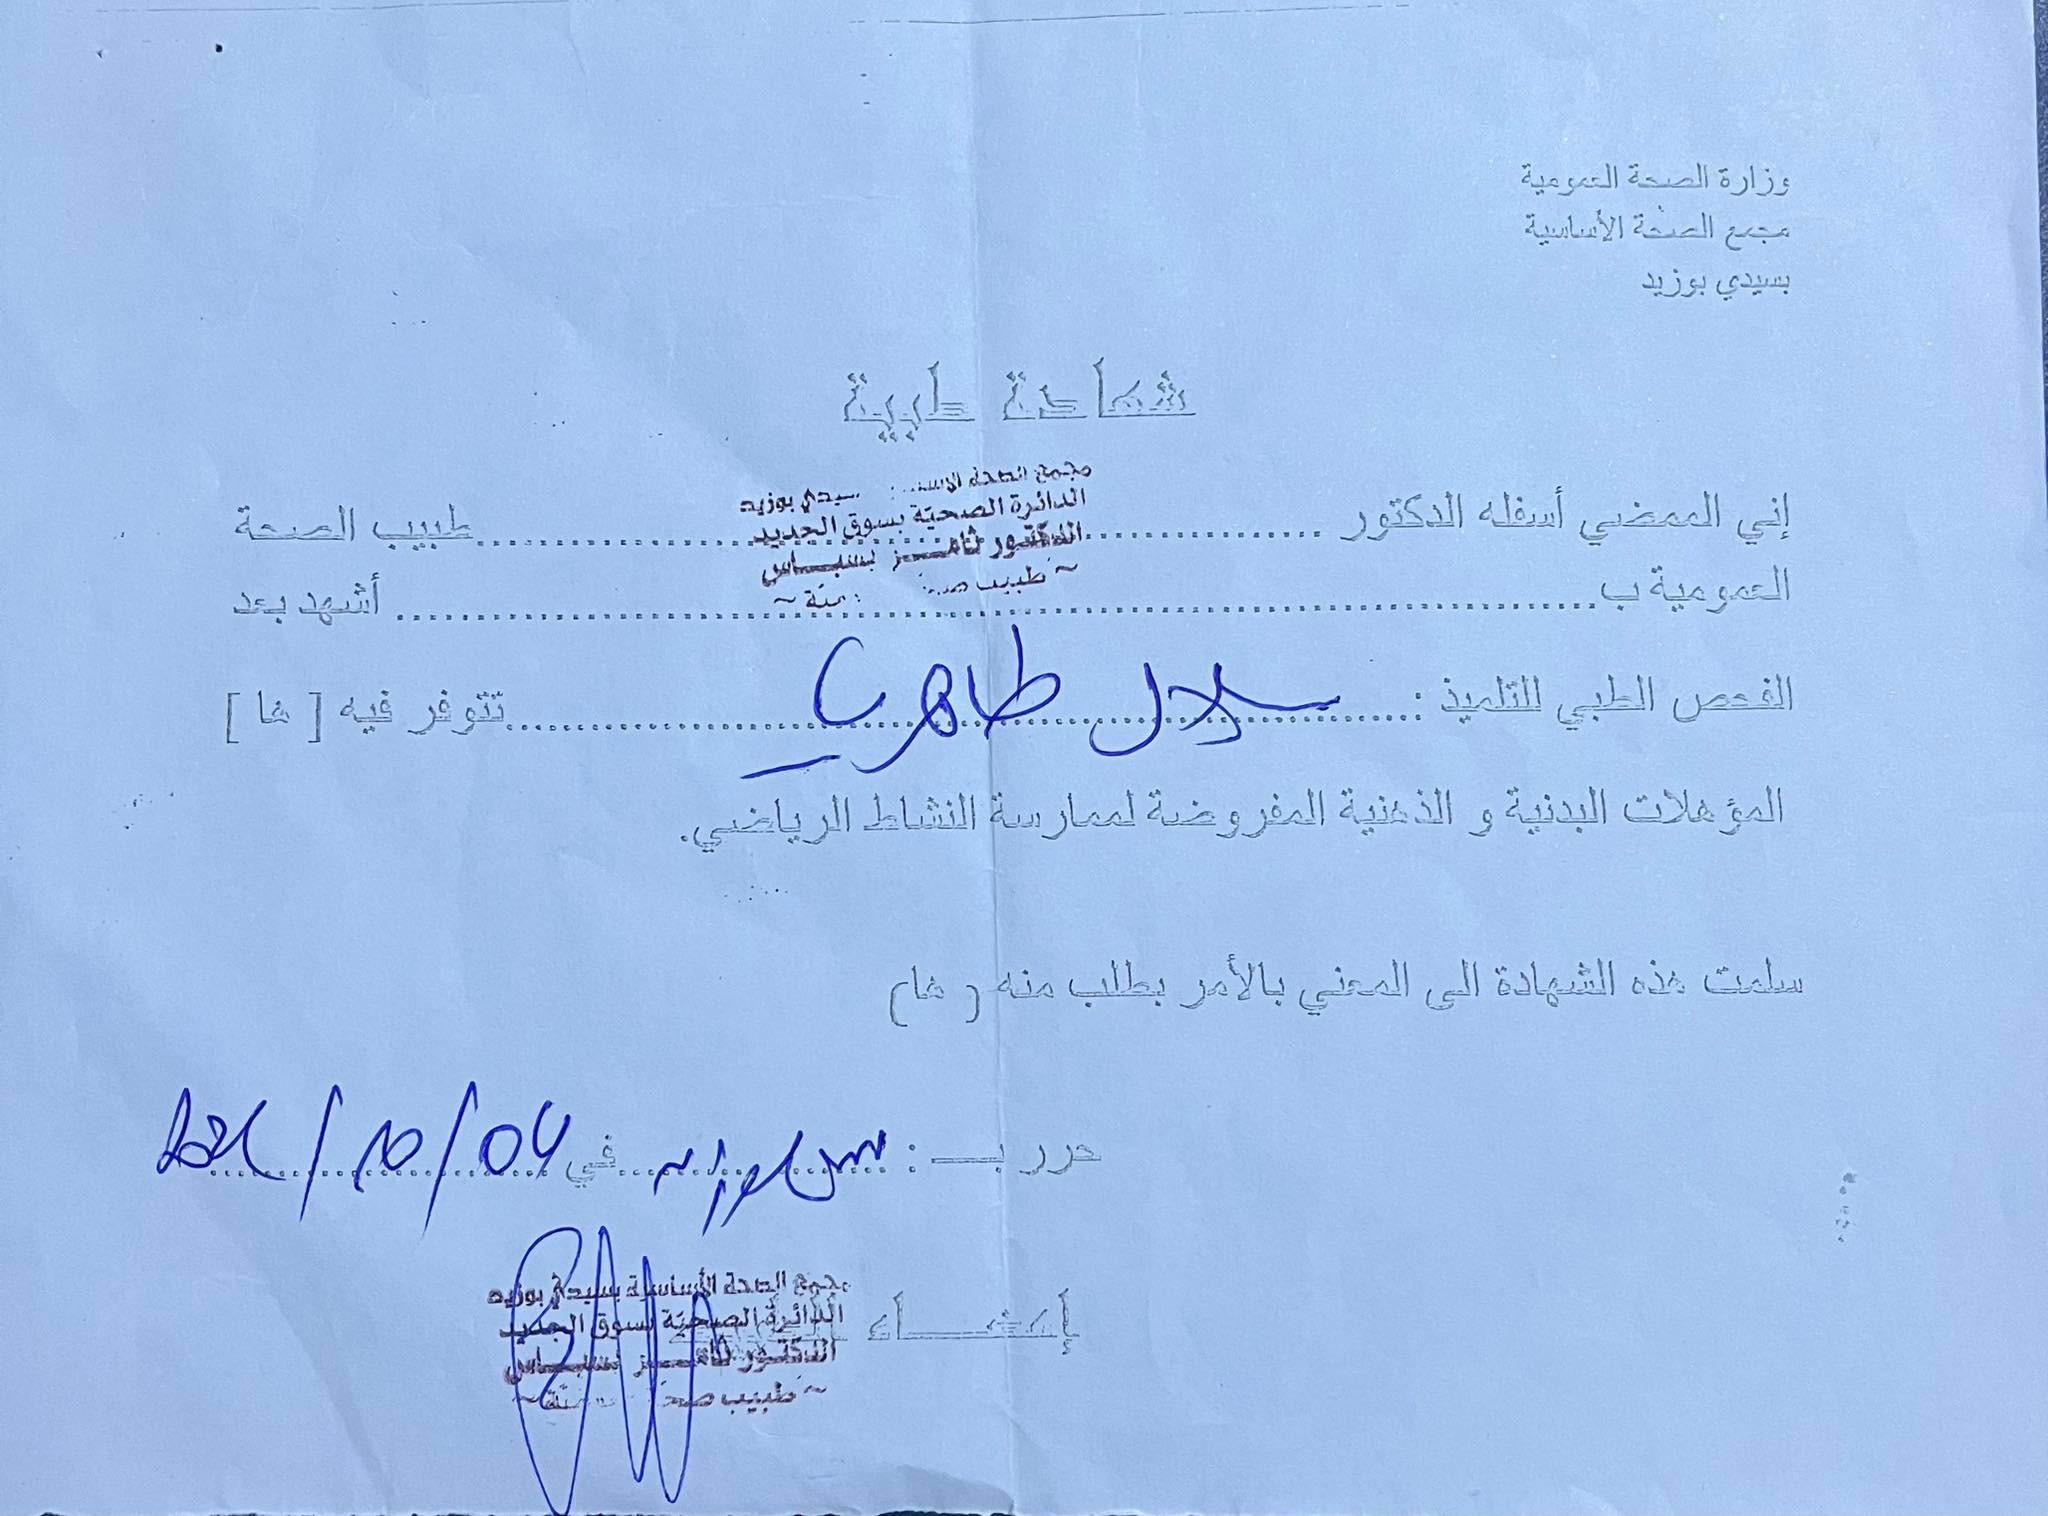 وزارة الصحة العمومية
مجمع الصحة الأساسية
بسيدي بوزيد
شهادة طبية
مجمع الصحة الاسـ سيدي بوزيد
الدائرة الصحية بسوق الجديد
الدكتور ثامـــر بسباس
~ طبيب صحـ ـة ~
إني الممضي أسفله الدكتور ........ طبيب الصحة
العمومية ب ........ أشهد بعد
الفحص الطبي للتلميذ : ........ طاهري ........ تتوفر فيه [ ها ]
المؤهلات البدنية و الذهنية المفروضة لممارسة النشاط الرياضي.
سلمت هذه الشهادة الى المعني بالأمر بطلب منه ( ها )
حرر بـــ : س بوزيد في 04/10/
إمضـــــاء
مجمع الصحة الأساسية بسيدي بوزيد
الدائرة الصحية بسوق الجديد
الدكتور ثامـــر بسباس
~ طبيب صحـ ـة ~